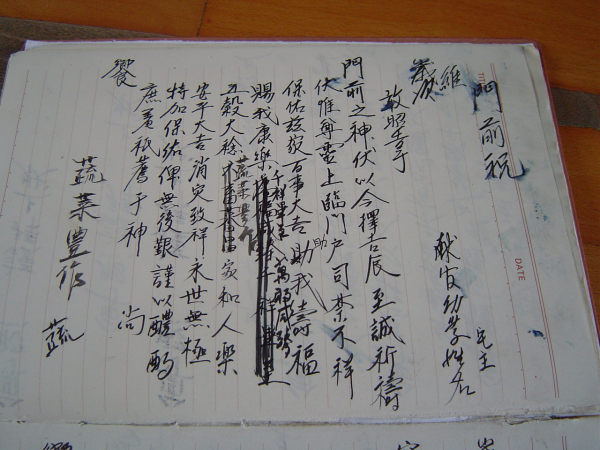 門前祝
民主
維
歲 獻官幼學姓名
敢昭告于
門前之神伏以今擇吉辰至誠祈禱
伏惟尊靈上臨門戶司禁不祥
保佑玆家百事大吉助我壽福
助
賜我康樂
五穀大稔 家和人樂
蔬菜豊作
安平大吉消灾致祥永世無極
特加保佑俾無後艱謹以醴酌
庶羞祇薦于神 尚
饗
蔬菜豊作 蔬
DATE